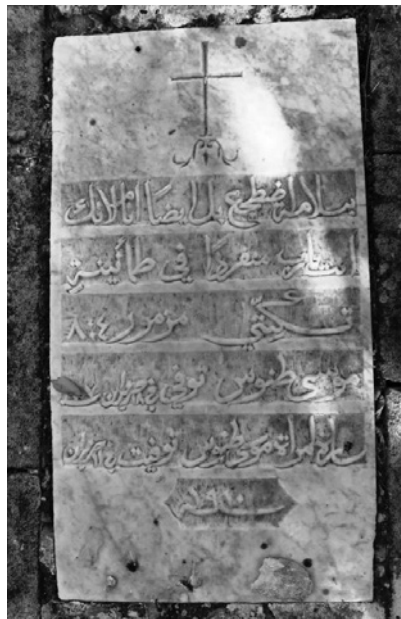 بسلامة اضطجع بل ايضًا انام لانك
انت يا رب منفردًا في طمأنينةٍ
تسكّنني مزمور ٤:٨
موسى طنوس توفي في حزيران
امراة موسى طنوس توفيت في حزيران
سنة